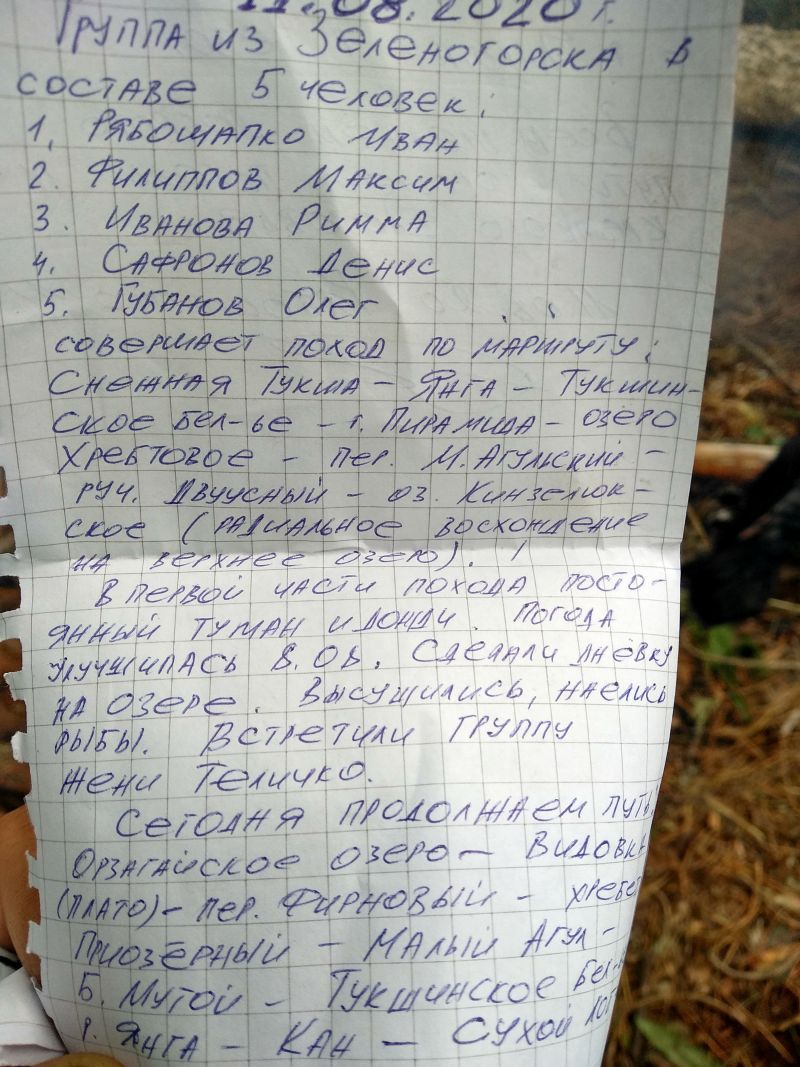 11.08.2020 г.
Группа из Зеленогорска в
составе 5 человек:
1. Рябошапко Иван
2. Филиппов Максим
3. Иванова Римма
4. Сафронов Денис
5. Губанов Олег
совершает поход по маршруту:
Снежная Тукша – Янга – Тукшин-
ское Бел-ье – г. Пирамида – озеро
Хребтовое – пер. М. Агульский –
руч. Двуусный – оз. Кинзелюк-
ское (радиальное восхождение
на верхнее озеро).
В первой части похода посто-
янный туман и дожди. Погода
улучшилась 8.08. Сделали днёвку
на озере. Высушились, наелись
рыбы. Встретили группу
Жени Теличко.
Сегодня продолжаем путь:
Орзагайское озеро –
(плато) – пер. Фирновый –
Приозёрный – Малый Агул –
Б. Мутой – Тукшинское
р. Янга – Кан – Сухой